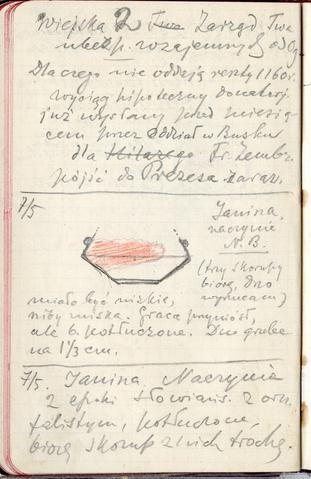 Wiejska 2 Twa Zarząd Twa
ubezp. wzajemnych od Og.
Dlaczego nie oddają renty 1160r.
wyciąg hipoteczny donatorj
już wysłany przed miesią
cem przez Oddział w Busku
dla Hilarego Fr. Zembrz.
pójść do Prezesa zaraz.
7/5
Janina,
naczynie
N. B.
(trzy skorupy
biorę, dno
wyrzucam)
miało być niskie,
niby miska. Graca przyniósł,
ale b. potłuczone. Dno grube
na 1 1/3 cm.
7/5. Janina Naczynia
z epoki słowiańs. z orn.
falistym, potłuczone,
biorę skorup z nich trochę.